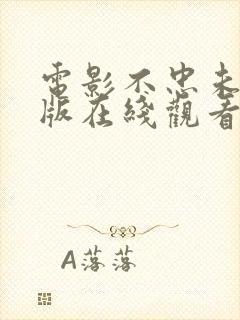 電影不忠未
版在綫觀看
A落落